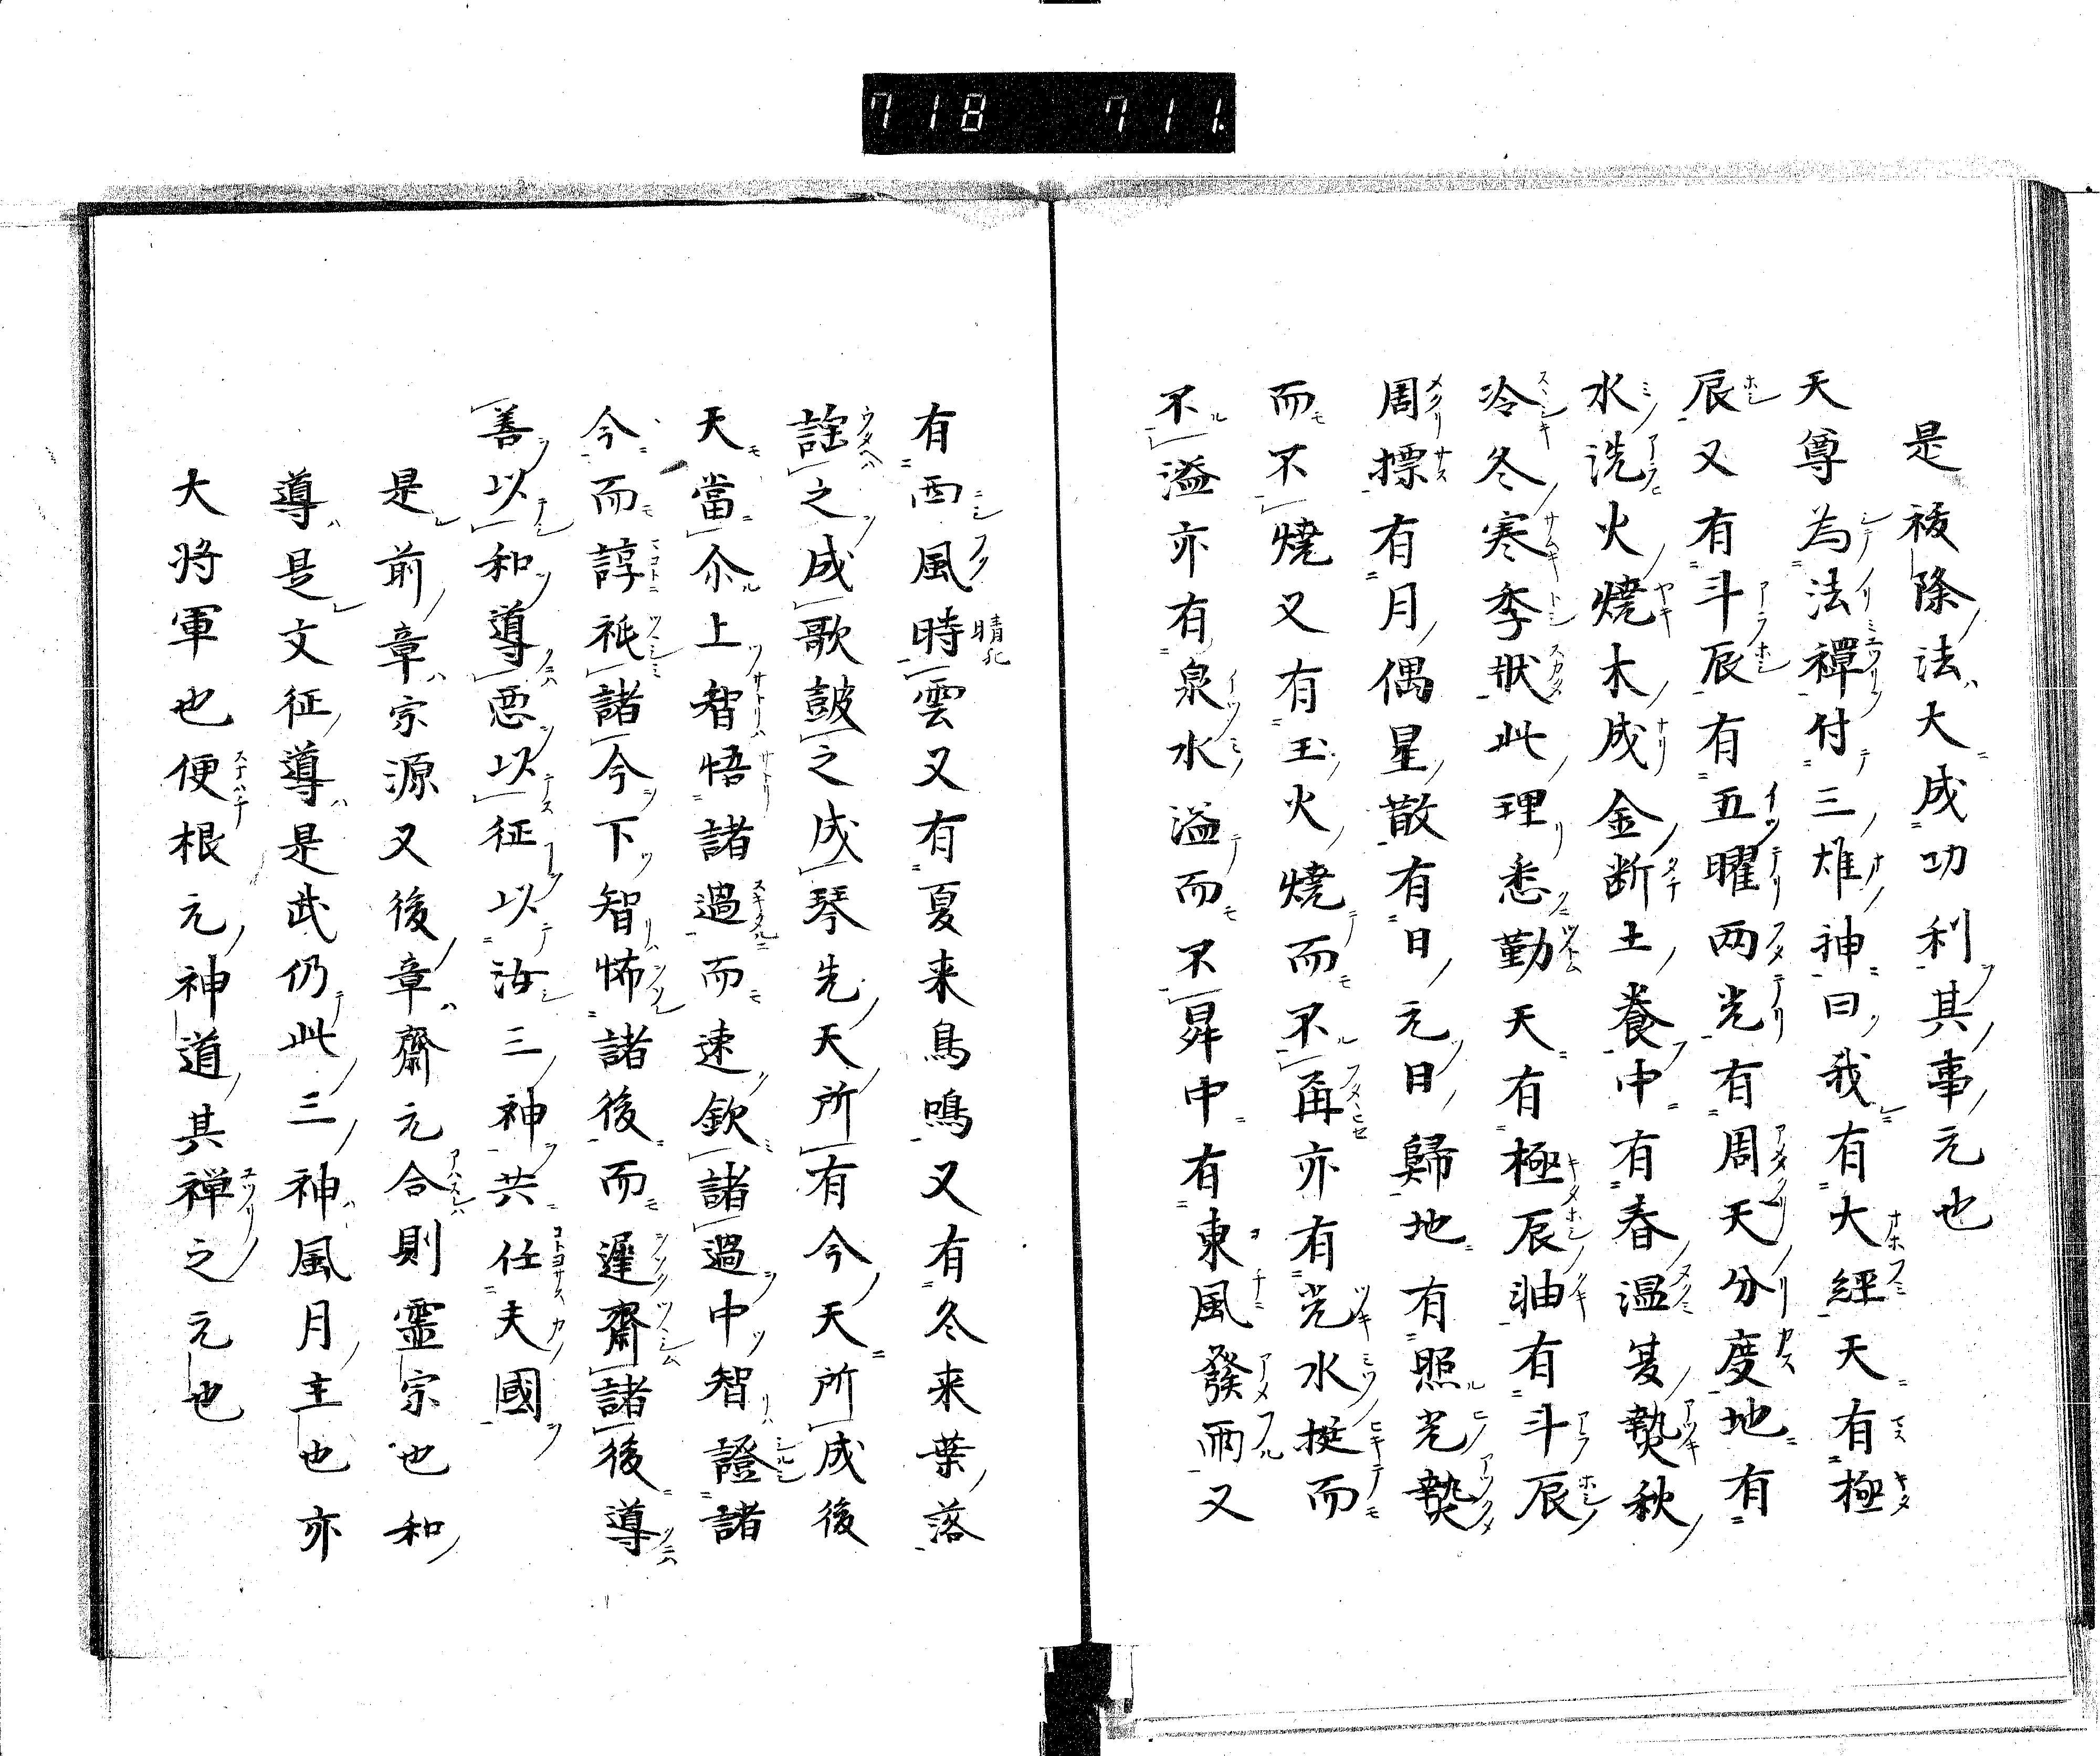 718 711.
是祓除法大成功利其事元也
天尊為法禪付三雄神曰我有大經天有極
辰又有斗辰有五曜两光有周天分度地有
水洗火燒木成金断土養中有春温夏熱秋
冷冬寒季狀此理悉勤天有極辰軸有斗辰
周標有月偶星散有日元日歸地有照光熱
而不燒又有玉火燒而不再亦有光水挻而
不溢亦有泉水溢而不昇中有東風發雨又
有西風時雲又有夏来鳥鳴又有冬来葉落
謡之成歌皷之成琴先天所有今天所成後
天當尒上智悟諸過而速欽諸過中智證諸
今而諄祗諸今下智怖諸後而遲齋諸後導
善以和導悪以征以汝三神共任夫國
是前章宗源又後章齋元合則霊宗也和
導是文征導是武仍此三神風月主也亦
大将軍也便根元神道其禅之元也